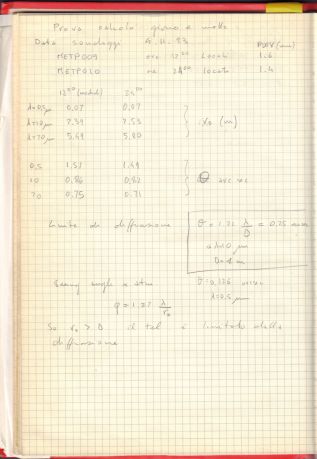 Prova calcolo giorno e notte
Data sondaggi 4.11.93 PWV (mm)
METP009 ore 12⁰⁰ locali 1.6
METP010 ore 24⁰⁰ locali 1.4
12⁰⁰ (medio) 24⁰⁰
λ=0.5 μm 0.07 0.07
λ=10 μm 2.39 2.53 } r₀ (m)
λ=20 μm 5.49 5.80
0.5 1.57 1.49
10 0.86 0.82 } θ arc sec
20 0.75 0.71
Limite di diffrazione θ = 1.22 λ/D = 0.25 arcsec
a λ=10 μm
D=1 m
Seeing angle θ = 0.126 arcsec
φ = 1.27 λ/r₀ λ=0.5 μm
Se r₀ > D il tel è limitato dalla
diffrazione